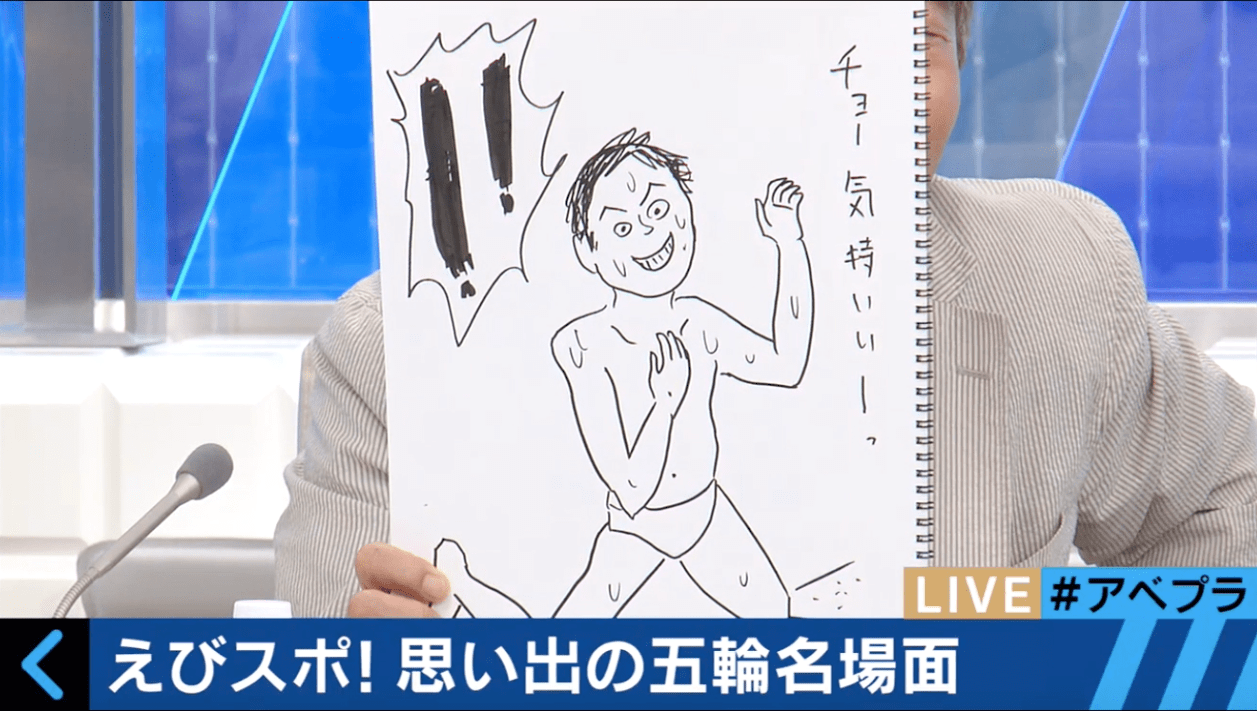 チョー気持いいーっ
!!
LIVE
#アベプラ
えびスポ! 思い出の五輪名場面